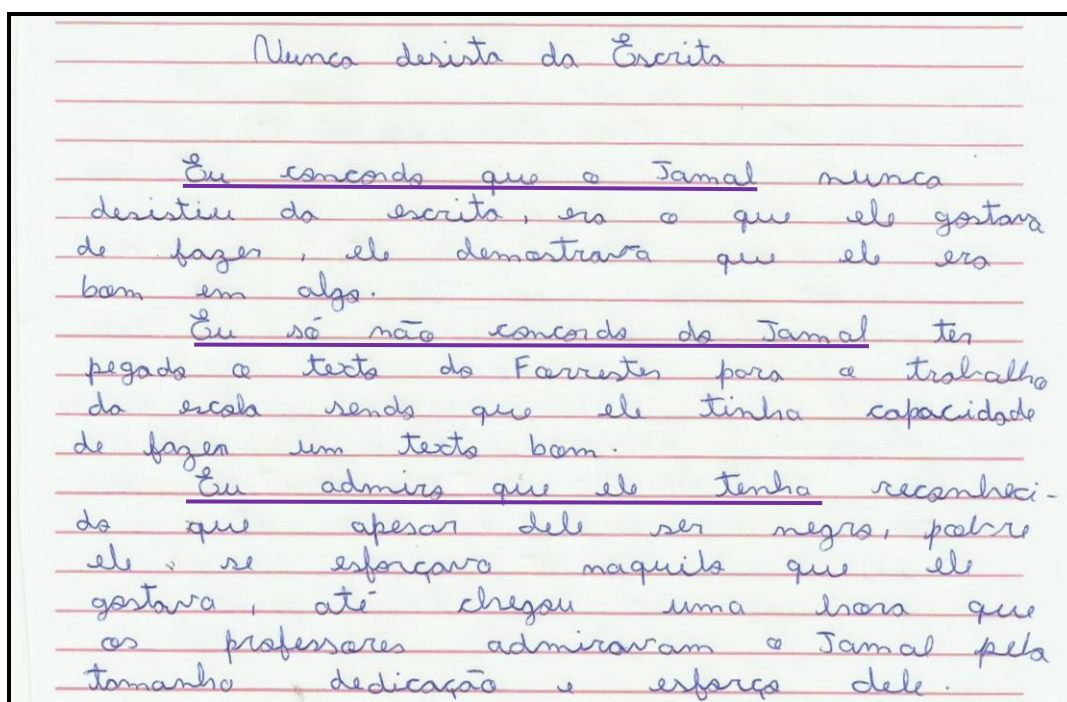 Nunca desista da Escrita
Eu concordo que o Jamal nunca
desistiu da escrita, era o que ele gostava
de fazer, ele demostrava que ele era
bom em algo.
Eu só não concordo do Jamal ter
pegado o texto do Forrester para o trabalho
da escola sendo que ele tinha capacidade
de fazer um texto bom.
Eu admiro que ele tenha reconheci-
do que apesar dele ser negro, pobre
ele se esforçava naquilo que ele
gostava, até chegou uma hora que
os professores admiravam o Jamal pela
tamanha dedicação e esforço dele.